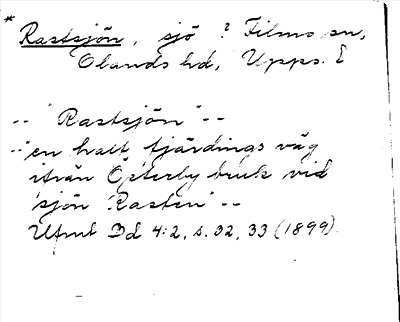 * Rastsjön, sjö ? Films sn,
Olands hd, Upps. l
-- "Rastsjön" --
-- "en half fjärdings väg
ifrån Österby bruk vid
sjön Rasten" --
Ufmt Bd 4:2, s. 32, 33 (1899)